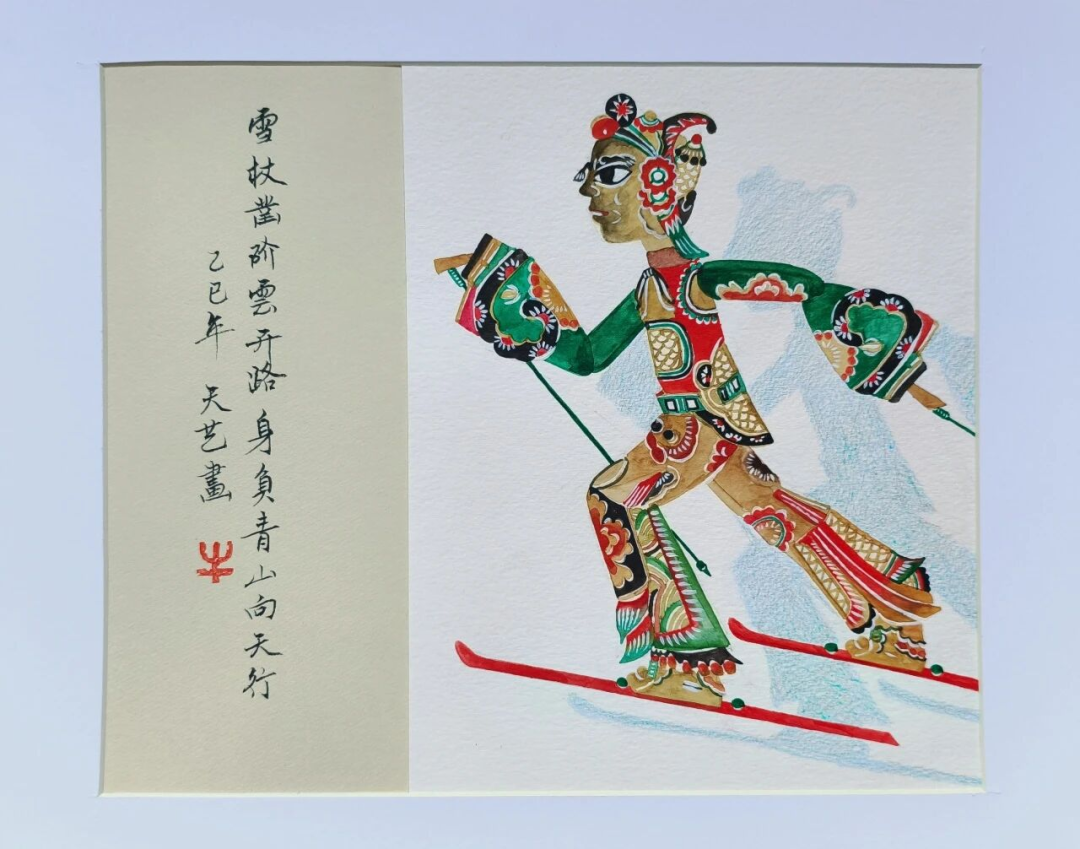 雪杖凿阶雲开路身負青山向天行
乙巳年 天艺畫